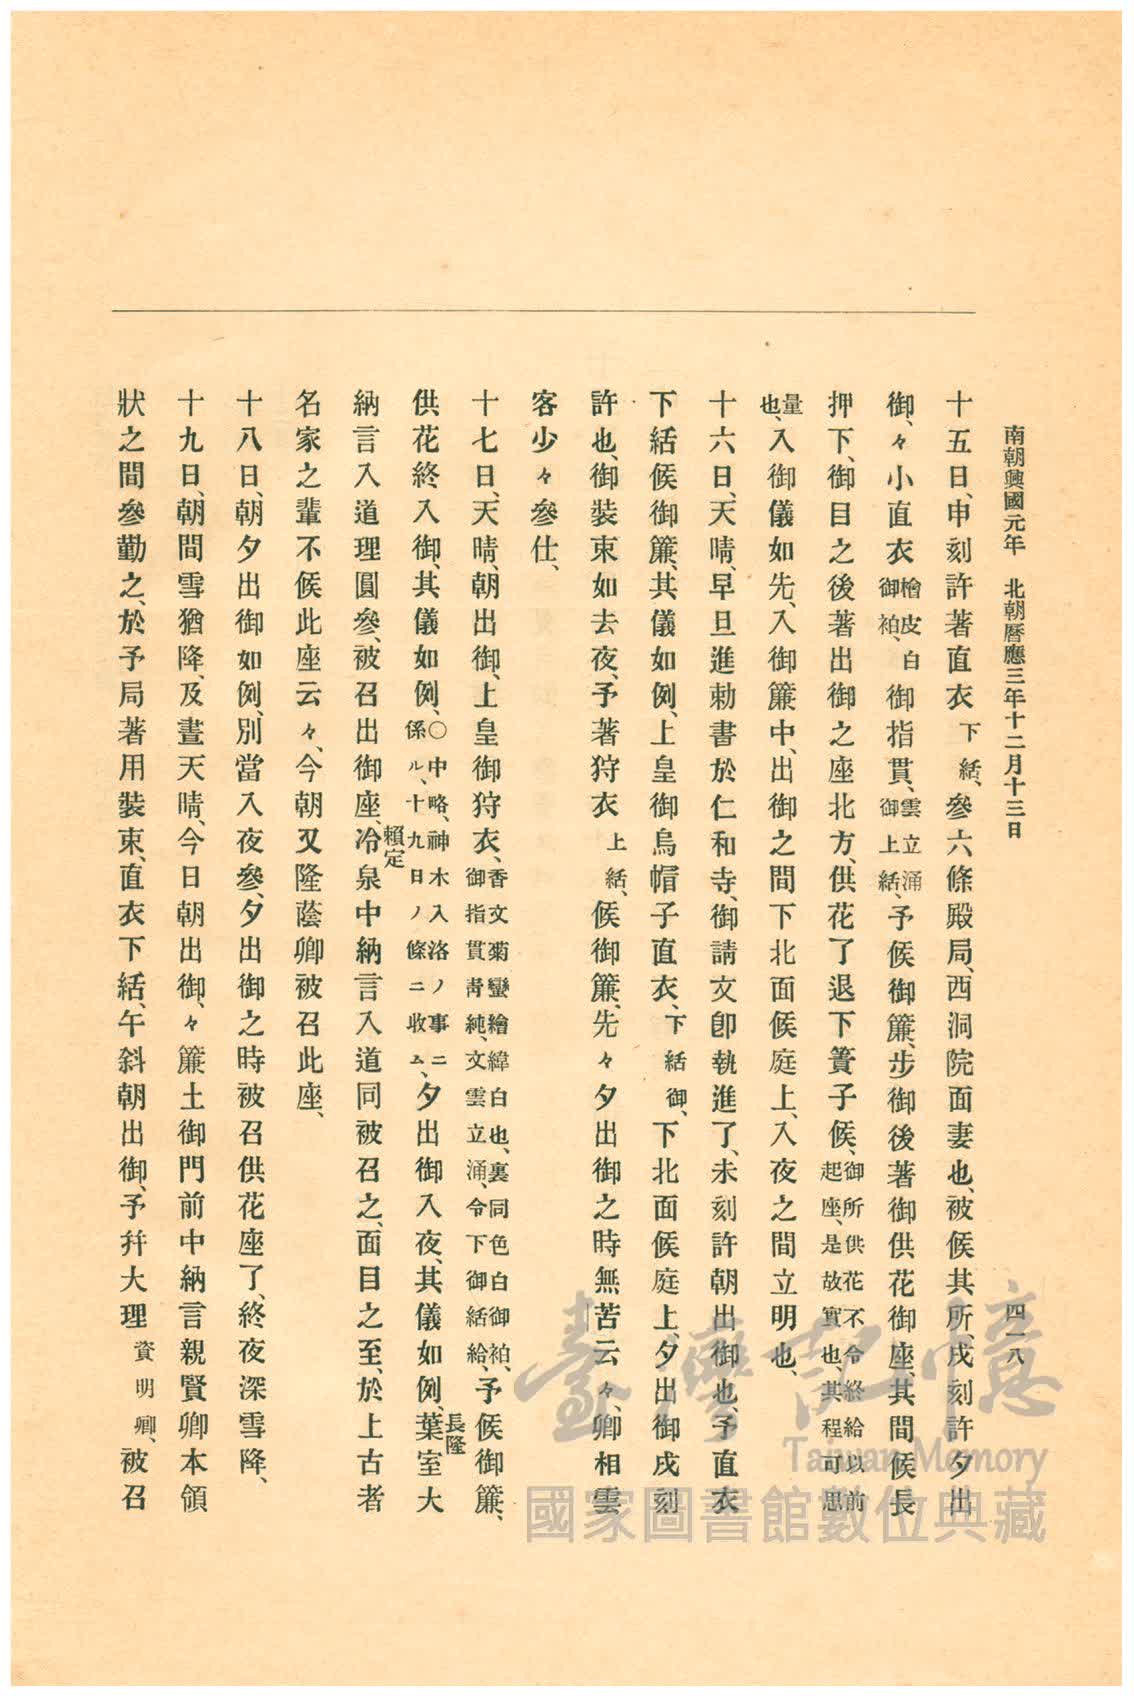 南朝興國元年　北朝曆應三年十二月十三日
四一八
十五日、申刻許著直衣下結、參六條殿局、西洞院面妻也、被候其所、戌刻許夕出
御、々小直衣檜皮白御袙、御指貫、雲立涌御上結、予候御簾、步御後著御供花御座、其間候長
押下、御目之後著出御之座北方、供花了退下簀子候、御所供花不令終給以前起座、是故實也、其程可思
量也、入御儀如先、入御簾中、出御之間下北面候庭上、入夜之間立明也、
十六日、天晴、早旦進勅書於仁和寺、御請文卽執進了、未刻許朝出御也、予直衣
下結候御簾、其儀如例、上皇御烏帽子直衣、下結御、下北面候庭上、夕出御戌刻
許也、御裝束如去夜、予著狩衣上結、候御簾、先々夕出御之時無苦云々、卿相雲
客少々參仕、
十七日、天晴、朝出御、上皇御狩衣、香文菊蠻繪緯白也、裏同色白御袙、御指貫靑純、文雲立涌、令下御結給、予候御簾、
供花終入御、其儀如例、〇中略、神木入洛ノ事ニ係ル、十九日ノ條ニ收ム、夕出御入夜、其儀如例、葉室大
長隆
納言入道理圓參、被召出御座、冷泉中納言入道同被召之、面目之至、於上古者
賴定
名家之輩不候此座云々、今朝又隆蔭卿被召此座、
十八日、朝夕出御如例、別當入夜參、夕出御之時被召供花座了、終夜深雪降、
十九日、朝間雪猶降、及晝天晴、今日朝出御、々簾土御門前中納言親賢卿本領
狀之間參勤之、於予局著用裝束、直衣下結、午斜朝出御、予幷大理資明卿、被召
臺灣記憶
Taiwan Memory
國家圖書館數位典藏